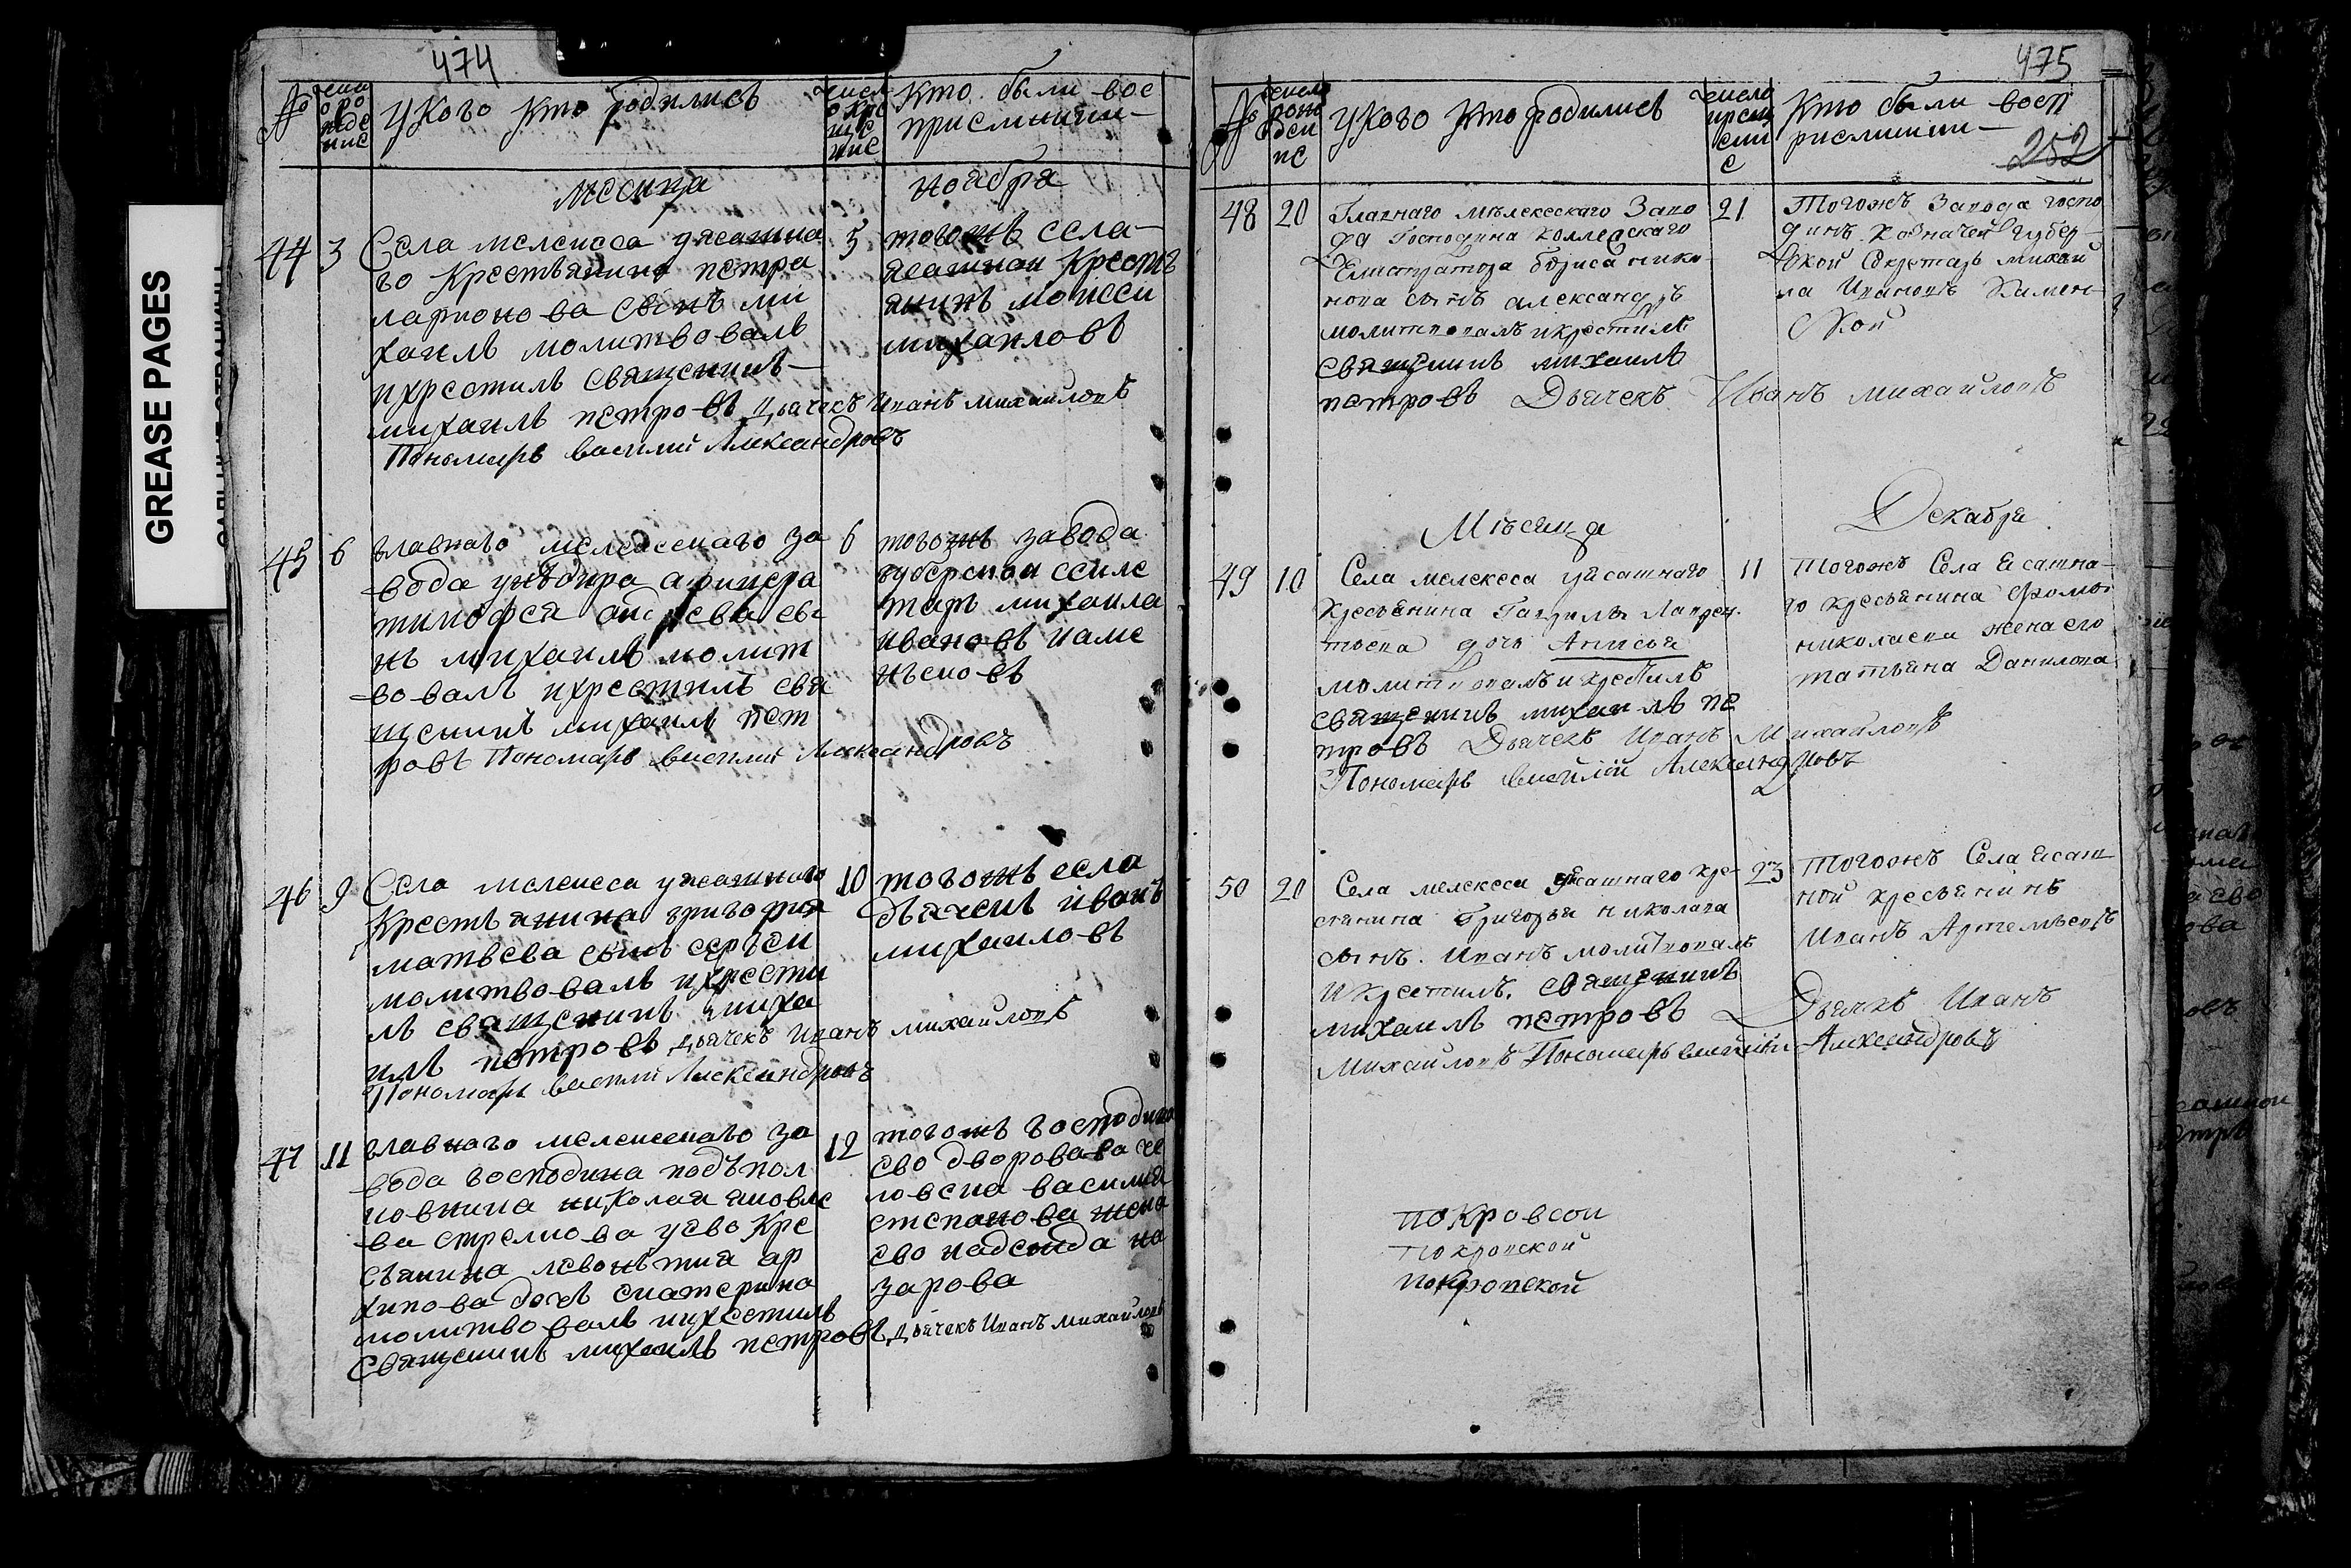 474
№
число рождение
у кого кто родились
число крещение
кто были вос
приемники
месяца ноября
44
3
Села мелекеса уясашна
го Крестьянина петра
ларионова сынъ ми
хаилъ молитвовалъ
икрестилъ священникъ
михаилъ петровъ Дьячекъ Иванъ михайловъ
Пономарь василий Александровъ
5
тогожъ села
ясашной Кресть
янинъ моисеи
михаиловъ
45
6
главнаго мелекескаго за
вода ундира афицера
тимофея сы
нъ михаилъ молит
вовалъ икрестилъ свя
щеникъ михаилъ пет
ровъ Пономарь василий Александровъ
6
тогожъ завода
губернской секре
тарь михаила
ивановъ каме
нъсковъ
46
9
Села мелекеса уясашнаго
Крестьянина григория
матвева сынъ сергеи
молитвовалъ икрести
лъ священикъ миха
илъ петровъ дьячекъ Иванъ михайловъ
Пономарь василий Александровъ
10
тогожъ села
дьячекъ иванъ
михаиловъ
47
11
главнаго мелекескаго за
вода господина подъпол
ковника николая яковле
ва стрелкова уево Кре
сьянина левонътия ар
хипова дочь екатерина
молитвовалъ икрестилъ
священикъ михаилъ петровъ дьячекъ Иванъ михайловъ
12
тогожъ господина
ево дворовава че
ловека василия
степанова жена
ево надежда на
зарова
475
252
№
число рождение
у кого кто родились
число крещение
кто были восп
риемники
48
20
Главнаго мѣлекескаго Заво
да Господина коллежскаго
Регистратора бориса нико
нова сынъ александръ
молитвовалъ икрестилъ
священикъ михаилъ
петровъ Дьячекъ Иванъ михайловъ
21
Тогожъ Завода госпо
динъ Козначей Губер
ской Секретарь михай
ла Ивановъ Камен
ской
Мѣсяца Декабря
49
10
Села мелекеса уясашнаго
кресьянина Гаврилы Лаврен
тьева дочь Анисья
молитвовалъ икрестилъ
священикъ михаилъ пе
тровъ Дьячекъ Иванъ Михайловъ
Пономарь василий Александровъ
11
Тогожъ Села ясашна
го кресьянина Фомы
николаева жена его
татьяна Данилова
50
20
Села мелекеса уясашнаго кре
стянина Григорья николаева
сынъ Иванъ молитвовалъ
Икрестилъ священикъ
михаилъ петровъ Дьячекъ Иванъ
Михайловъ Пономарь василий Александровъ
23
Тогожъ Села ясаш
ной кресьянинъ
Иванъ Артемьевъ
покровсои
покровской
покровской
GREASE PAGES